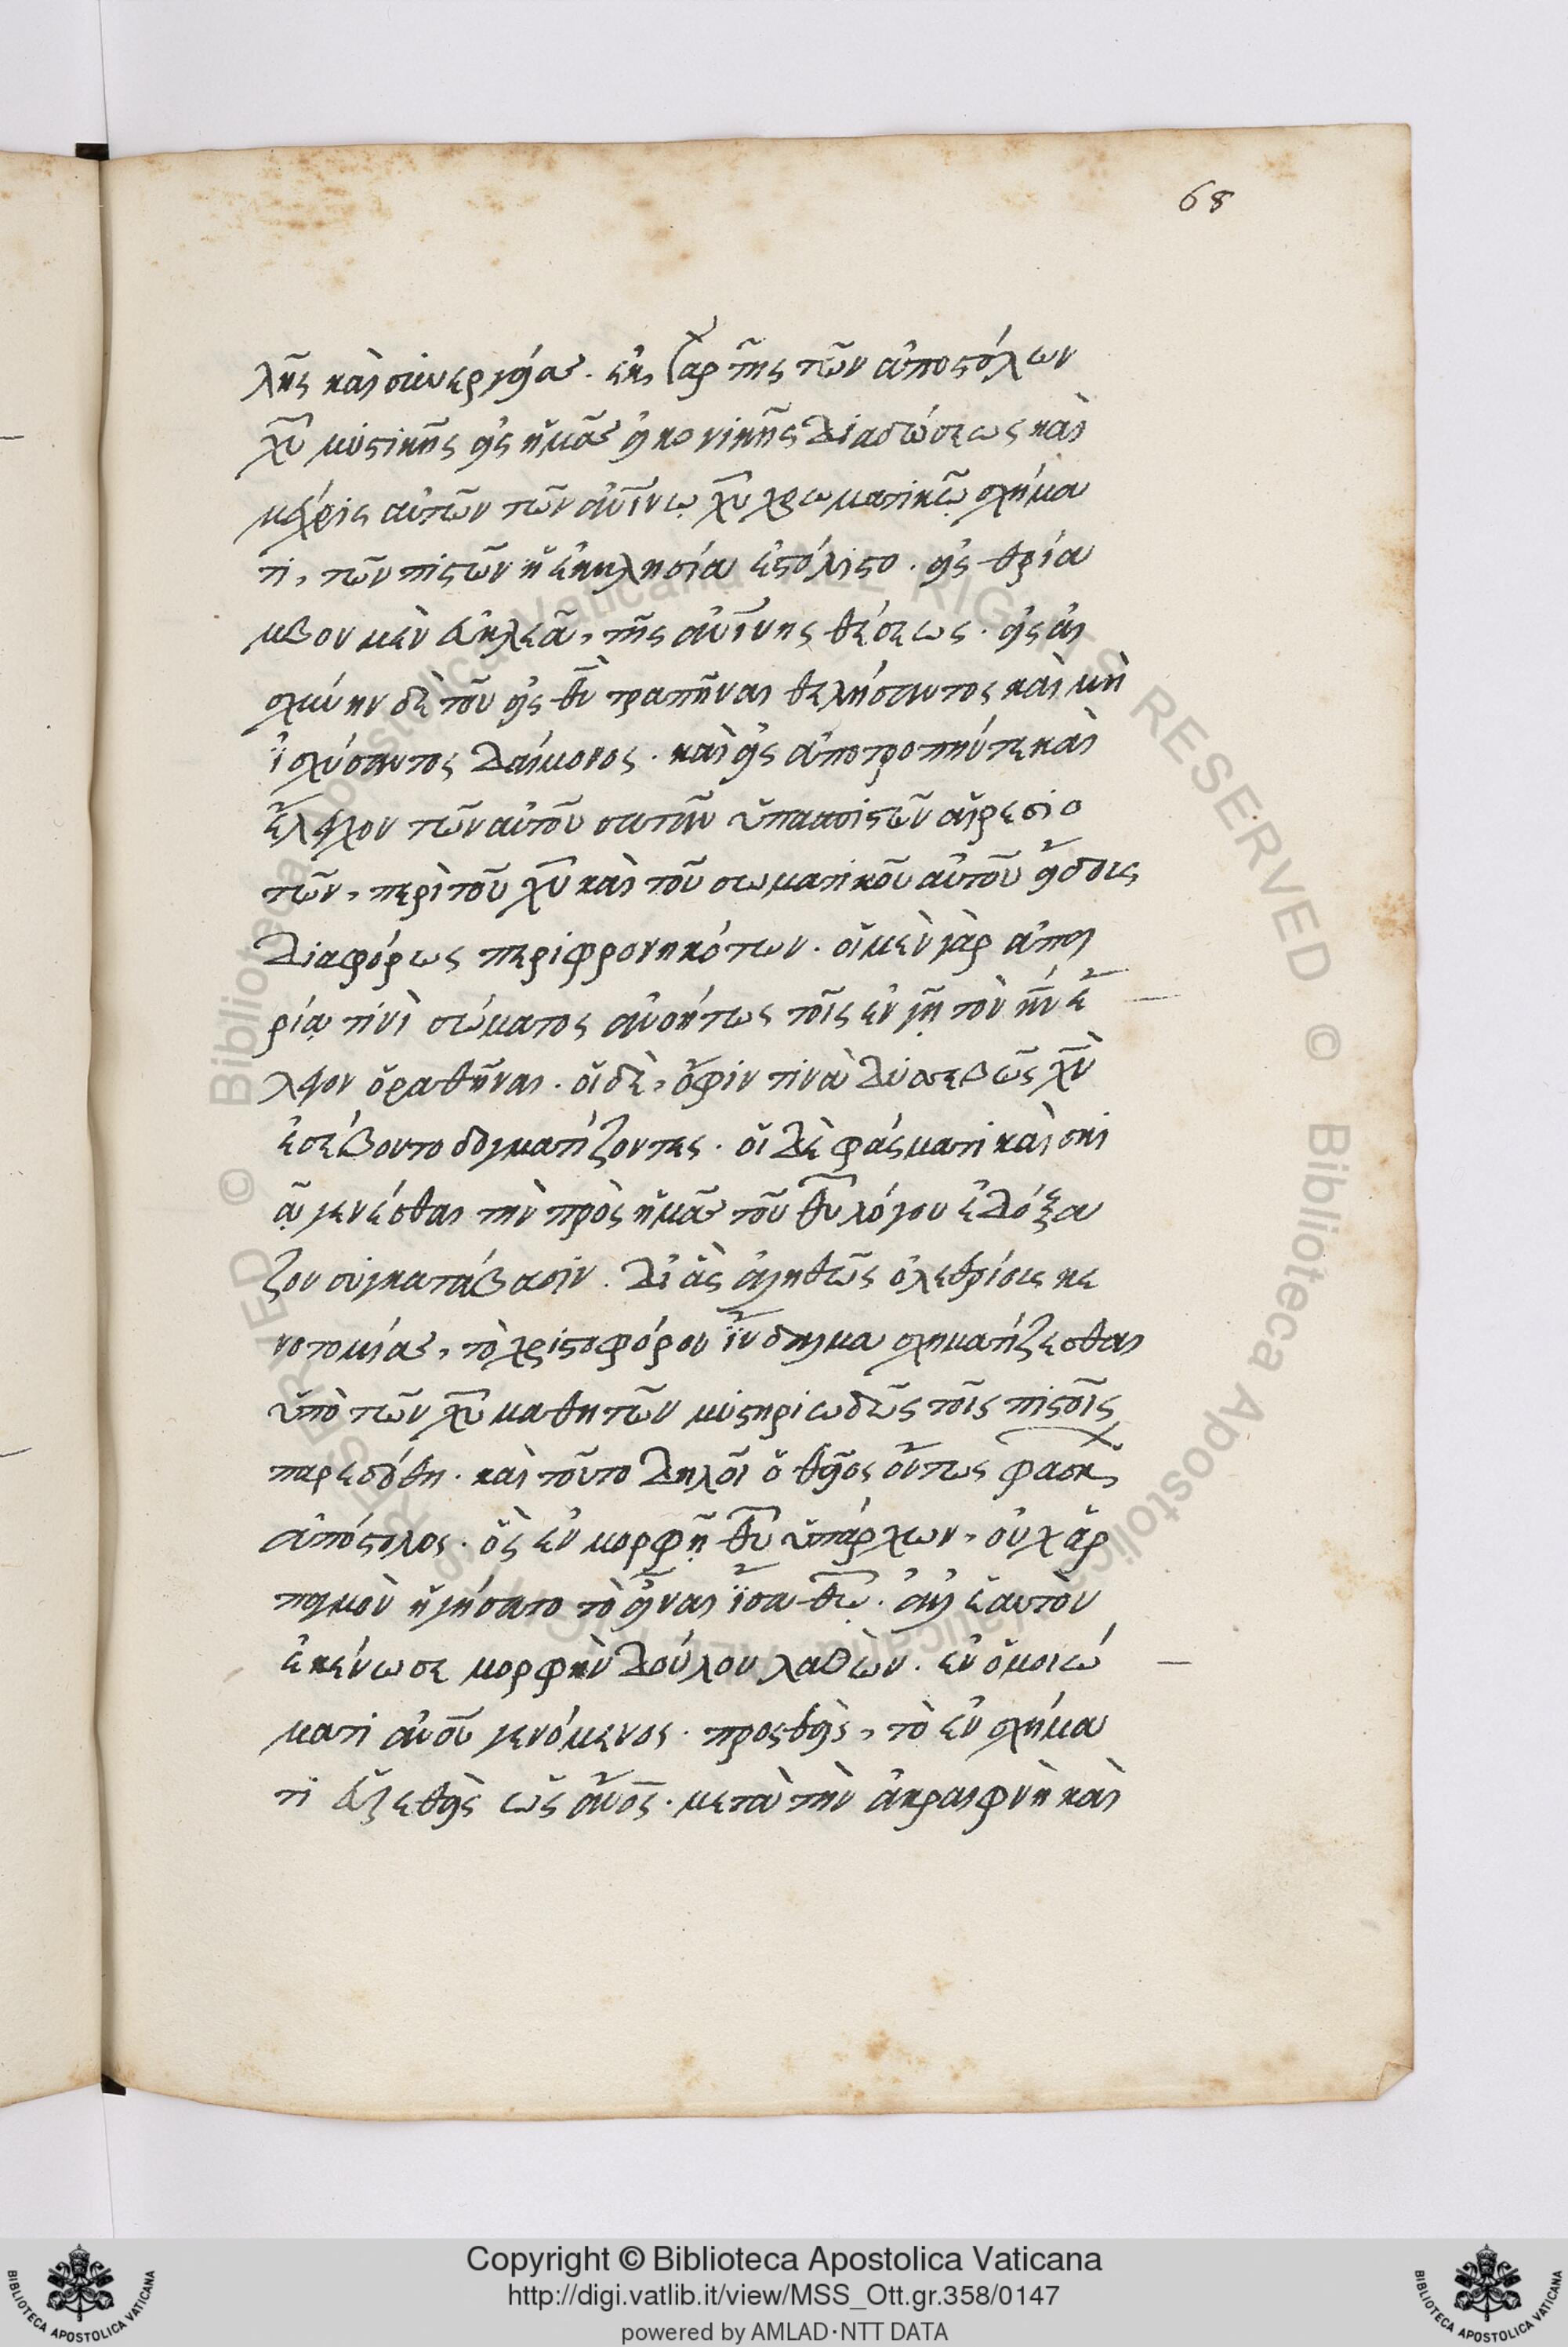 68
λῆς καὶ συνεργείας. ἐκ γὰρ τῆς τῶν ἀποστόλων
χῦ μυστικῆς εἰς ἡμᾶς εἰκονικῆς διαδώσεως καὶ
μέχρις αὐτῶν τῶν ἀνΐνω χῦ χρωματικῶ σχήμα
τι, τῶν πιστῶν ἡ ἐκκλησία ἐστόλιστο. εἰς θρία
μβον μὲν εὐκλεᾶ, τῆς ἀνΐνης θέσεως. εἰς αἰ
σχύνην δὲ τοῦ εἰς θν τραπῆναι θελήσαντος καὶ μὴ
ϊσχύσαντος δαίμονος. καὶ εἰς ἀποτροπήν τε καὶ
ἔλεγχον τῶν αὐτοῦ σατὰν ὑπασπιστῶν αἱρεσιο
τῶν, περὶ τοῦ χῦ καὶ τοῦ σωματικοῦ αὐτοῦ εἴδους
διαφόρως περιφρονηκότων. οἱ μὲν γὰρ ἀπει
ρία τινὶ σώματος ἀνοήτως τοῖς ἐν γῆ τὸν ἥν ἔ
λεγον ὁραθῆναι. οἱ δὲ, ὄφιν τινὰ δυσσεβῶς χν
ἐσέβοντο δογματίζοντες. οἱ δὲ φάσματι καὶ σκι
ᾶ γενέσθαι τὴν πρὸς ἡμᾶς τοῦ θῦ λόγου ἐδόξα
ζον συγκατάβασιν. δι ἃς ἀληθῶς ὀλεθρίους κε
νοτομίας, τὸ χριστοφόρον ἴνδαλμα σχηματίζεσθαι
ὑπὸ τῶν χῦ μαθητῶν μυστηριωδῶς τοῖς πιστοῖς
παρεδόθη. καὶ τοῦτο δηλοῖ ὁ θεῖος οὕτως φάσκων
ἀπόστολος. ὃς ἐν μορφῆ θῦ ὑπάρχων, οὐχ ἁρ
παγμὸν ἡγήσατο τὸ εἶναι ἴσα θῶ. ἀλλ ἑαυτὸν
ἐκένωσε μορφὴν δούλου λαβὼν. ἐν ὁμοιώ
ματι ἀνου γενόμενος. προσθεὶς, τὸ ἐν σχήμα
τι εὑρεθεὶς ὡς ἄνος. μετὰ τὴν ἀκραιφνῆ καὶ
Copyright © Biblioteca Apostolica Vaticana
http://digi.vatlib.it/view/MSS_Ott.gr.358/0147
powered by AMLAD·NTT DATA